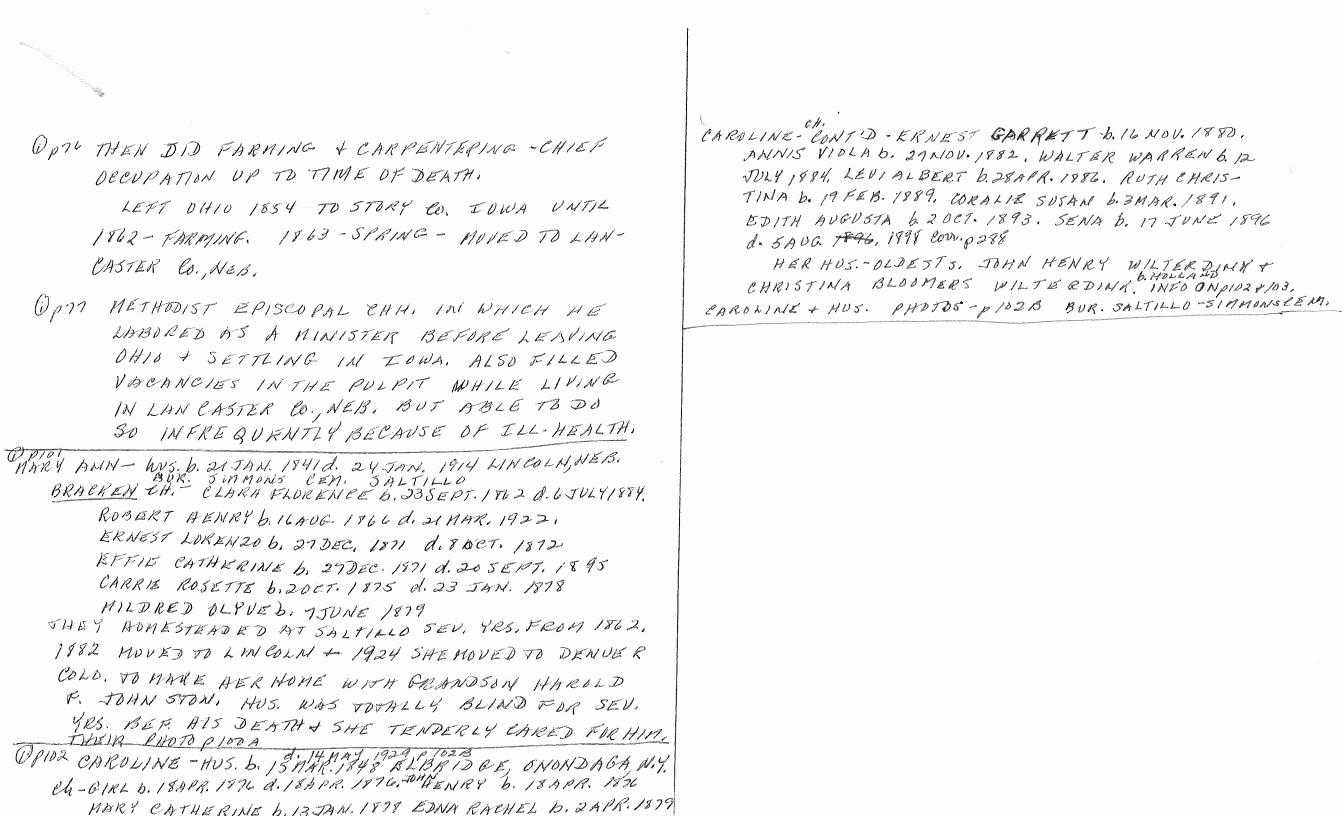 ①p76 THEN DID FARMING + CARPENTERING - CHIEF
OCCUPATION UP TO TIME OF DEATH.
LEFT OHIO 1854 TO STORY CO. IOWA UNTIL
1862 - FARMING. 1863 - SPRING - MOVED TO LAN-
CASTER CO., NEB.
①p77 METHODIST EPISCOPAL CHH. IN WHICH HE
LABORED AS A MINISTER BEFORE LEAVING
OHIO + SETTLING IN IOWA. ALSO FILLED
VACANCIES IN THE PULPIT WHILE LIVING
IN LANCASTER CO., NEB. BUT ABLE TO DO
SO INFREQUENTLY BECAUSE OF ILL-HEALTH.
①p101
MARY ANN - hus. b. 21 JAN. 1841 d. 24 JAN. 1914 LINCOLN, NEB.
BUR. SIMMONS CEM. SALTILLO
BRACKEN CH. - CLARA FLORENCE b. 23 SEPT. 1862 d. 6 JULY 1884.
ROBERT HENRY b. 16 AUG. 1866 d. 21 MAR. 1922.
ERNEST LORENZO b. 27 DEC. 1871 d. 8 OCT. 1872
EFFIE CATHERINE b. 27 DEC. 1871 d. 20 SEPT. 1895
CARRIE ROSETTE b. 2 OCT. 1875 d. 23 JAN. 1878
MILDRED OLYVE b. 7 JUNE 1879
THEY HOMESTEADED AT SALTILLO SEV. YRS. FROM 1862.
1882 MOVED TO LINCOLN + 1924 SHE MOVED TO DENVER
COLO. TO MAKE HER HOME WITH GRANDSON HAROLD
F. JOHNSTON. HUS. WAS TOTALLY BLIND FOR SEV.
YRS. BEF. HIS DEATH & SHE TENDERLY CARED FOR HIM.
THEIR PHOTO p100A
d. 14 MAY 1929 p102B
①p102 CAROLINE - HUS. b. 15 MAR. 1848 ELBRIDGE, ONONDAGA, N.Y.
Ch - GIRL b. 18 APR. 1876 d. 18 APR. 1876. JOHN HENRY b. 18 APR. 1876
MARY CATHERINE b. 13 JAN. 1878 EDNA RACHEL b. 2 APR. 1879
CAROLINE - CH. CONT'D - ERNEST GARRETT b. 16 NOV. 1880.
ANNIS VIOLA b. 27 NOV. 1882. WALTER WARREN b. 12
JULY 1884. LEVI ALBERT b. 28 APR. 1886. RUTH CHRIS-
TINA b. 19 FEB. 1889. CORALIE SUSAN b. 3 MAR. 1891.
EDITH AUGUSTA b. 2 OCT. 1893. SENA b. 17 JUNE 1896
d. 5 AUG. 1896, 1898 Corr. p288
HER HUS. - OLDEST S. JOHN HENRY WILTERDINK +
b. HOLLAND
CHRISTINA BLOOMERS WILTERDINK. INFO ON p102 & 103.
CAROLINE + HUS. PHOTOS - p102B BUR. SALTILLO - SIMMONS CEM.